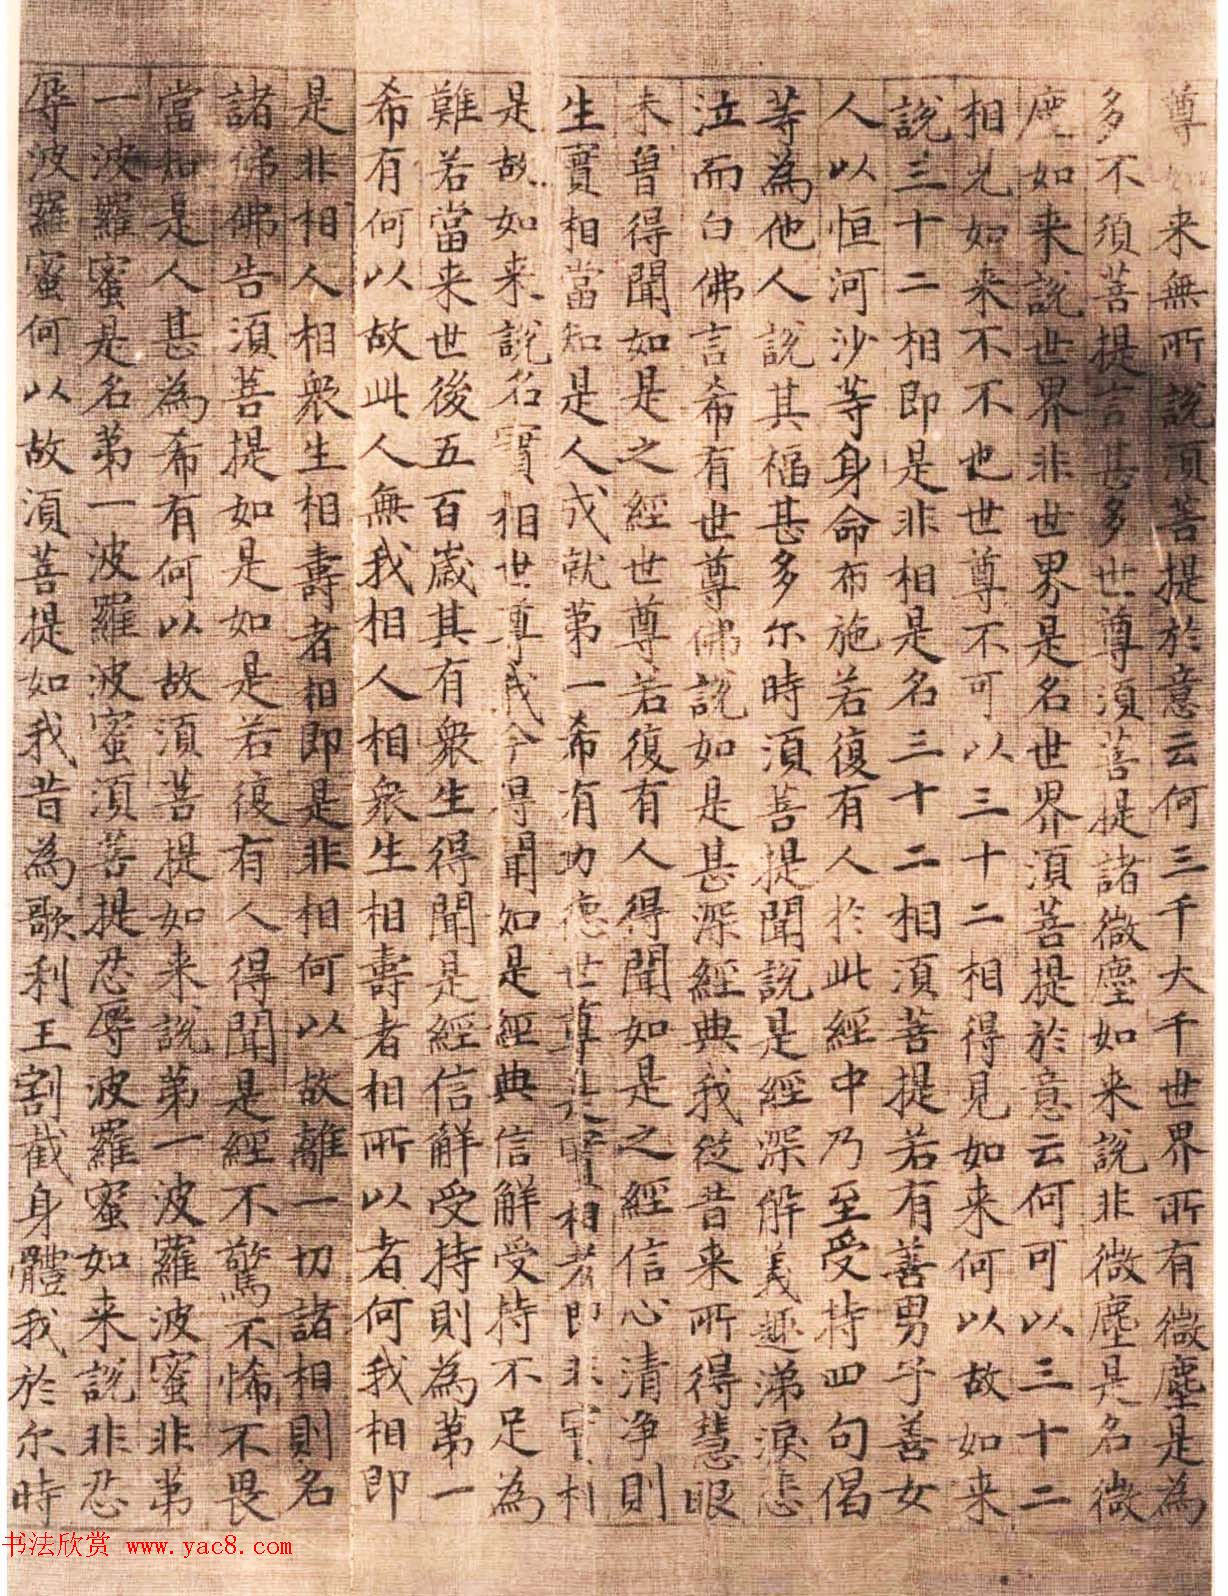 尊如来無所說須菩提於意云何三千大千世界所有微塵是為
多不須菩提言甚多世尊須菩提諸微塵如来說非微塵是名微
塵如来說世界非世界是名世界須菩提於意云何可以三十二
相見如来不不也世尊不可以三十二相得見如来何以故如来
說三十二相即是非相是名三十二相須菩提若有善男子善女
人以恒河沙等身命布施若復有人於此經中乃至受持四句偈
等為他人說其福甚多尔時須菩提聞說是經深解義趣涕淚悲
泣而白佛言希有世尊佛說如是甚深經典我從昔来所得慧眼
未曾得聞如是之經世尊若復有人得聞如是之經信心清净則
生實相當知是人成就第一希有功德世尊是實相者即非實相
是故如来說名實相世尊我今得聞如是經典信解受持不足為
難若當来世後五百歲其有衆生得聞是經信解受持則為第一
希有何以故此人無我相人相衆生相壽者相所以者何我相即
是非相人相衆生相壽者相即是非相何以故離一切諸相則名
諸佛佛告須菩提如是如是若復有人得聞是經不驚不怖不畏
當知是人甚為希有何以故須菩提如来說第一波羅波蜜非第
一波羅蜜是名第一波羅波蜜須菩提忍辱波羅蜜如来說非忍
辱波羅蜜何以故須菩提如我昔為歌利王割截身體我於尔時
书法欣赏 www.yac8.com